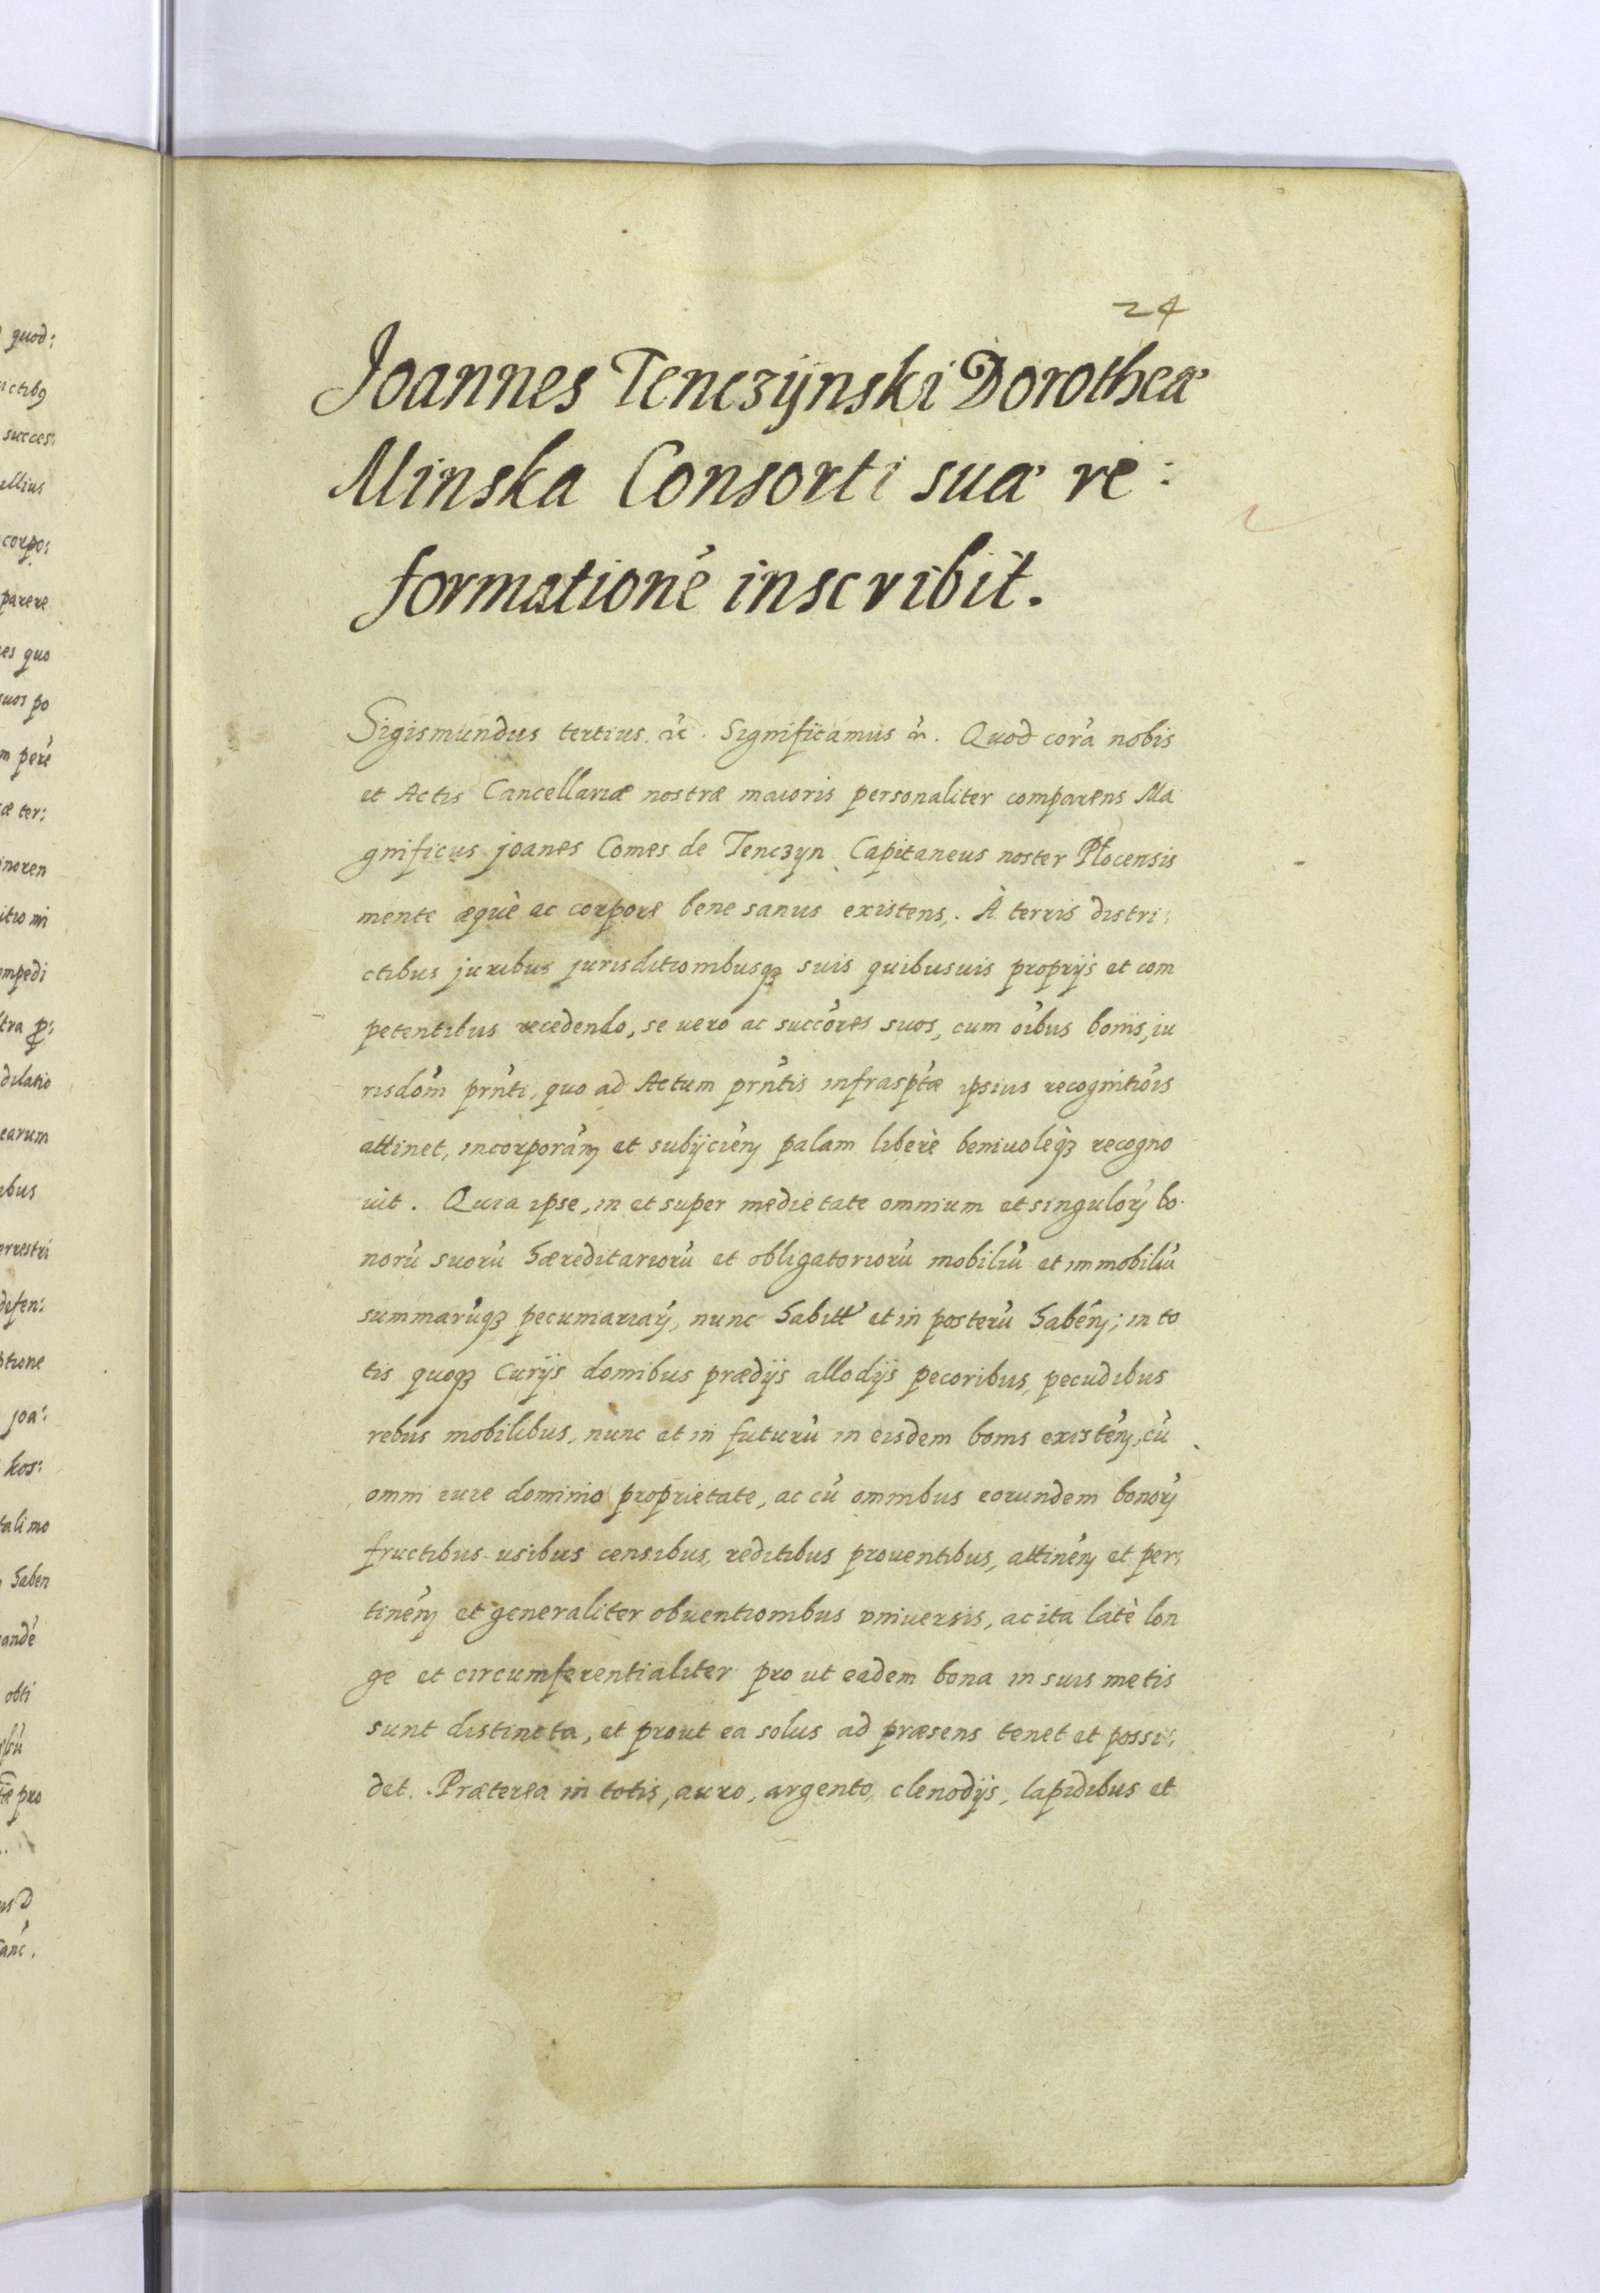 24
Joannes Tenczÿnski Dorotheæ
Minska Consorti suæ re:
formationé inscribit.
Sigismundus tertius. &c. Significamus &. Quod corá nobis
et Actis Cancellariæ nostræ maioris personaliter comparens Ma
gnificus Joanes Comes de Tenczyn Capitaneus noster Płocensis
mente æquè ac corpore bene sanus existens. À terris distri:
ctibus juribus jurisditionibusqȝ suis quibusuis proprijs et com
petentibus recedendo, se uero ac succóres suos, cum óibus bonis, iu
risdóni prńti, quo ad Actum prńtis infrasptæ ipsius recognitióis
attinet, incorporáñ et subijcién palam liberè beniuolèqȝ recogno
uit. Quia ipse, in et super medietate omnium et singulorų bo
norú suorú hæreditariorú et obligatoriorú mobiliú et immobiliú
summarúqȝ pecuniariarų, nunc habitt et in posterú habén; in to
tis quoqȝ Curijs domibus prædijs allodijs pecoribus, pecudibus
rebus mobilibus, nunc et in futurú in eisdem bonis existén, cú
omni iure dominio proprietate, ac cú omnibus eorundem bonorų
fructibus usibus censibus, reditibus prouentibus, attinén et per:
tinén et generaliter obuentionibus vniuersis, ac ita latè lon
ge et circumferentialiter pro ut eadem bona in suis metis
sunt distincta, et prout ea solus ad præsens tenet et possi:
det. Præterea in totis, auro, argento, clenodijs, lapidibus et
quod:
succes:
ellius
corpo:
parere
es quo
suos po
m peré
æ ter:
inoren
itio ni
mpedi
dilatio
earum
ibus
errestri
defen:
ptione
joa:
kos:
tali mo
haben
andé
obti
pro